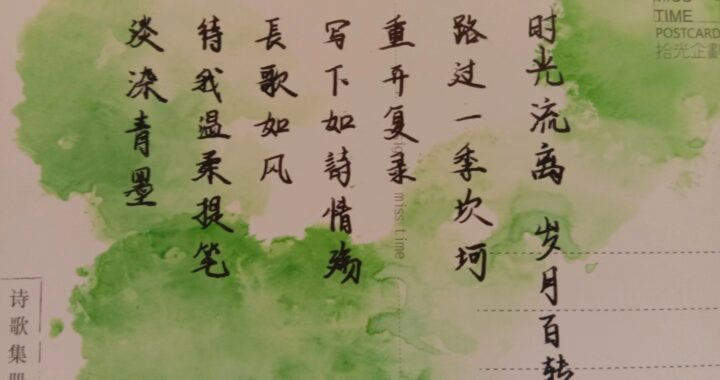 时光流离 岁月百转
路过一季坎坷
重开复录
写下如詩情殇
長歌如风
待我温柔提笔
淡染青墨
MISS
TIME
POSTCARD
拾光企畫
miss time
诗歌集册